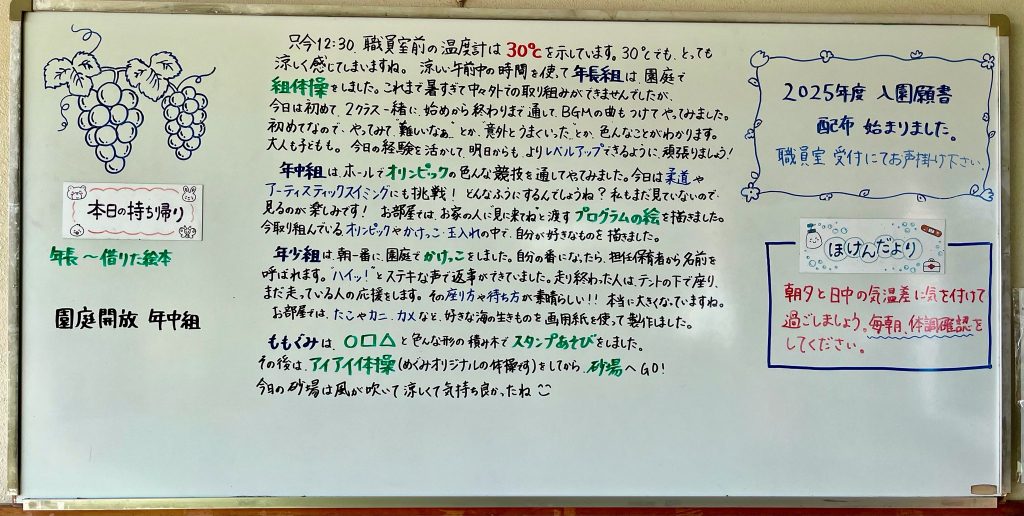 本日の持ち帰り
年長～借りた絵本
園庭開放 年中組
只今12:30、職員室前の温度計は30℃を示しています。30℃でも、とっても
涼しく感じてしまいますね。涼しい午前中の時間を使って年長組は、園庭で
組体操をしました。これまで暑すぎて中々外での取り組みができませんでしたが、
今日は初めて、2クラス一緒に、始めから終わりまで通して、BGMの曲もつけてやってみました。
初めてなので、やってみて"難しいなぁ"とか、"意外とうまくいった"とか、色んなことがわかります。
大人も子どもも。今日の経験を活かして、明日からも、よりレベルアップできるように、頑張りましょう!
年中組は、ホールでオリンピックの色んな競技を通してやってみました。今日は柔道や
アーティスティックスイミングにも挑戦! どんなふうにするんでしょうね? 私もまだ見ていないので、
見るのが楽しみです! お部屋では、お家の人に"見に来てね"と渡すプログラムの絵を描きました。
今取り組んでいるオリンピックやかけっこ・玉入れの中で、自分が好きなものを描きました。
年少組は、朝一番に、園庭でかけっこをしました。自分の番になったら、担任保育者から名前を
呼ばれます。"ハイッ!"とステキな声で返事ができていました。走り終わった人は、テントの下で座り、
まだ走っている人の応援をします。その座り方や待ち方が素晴らしい!! 本当に大きくなっていますね。
お部屋では、たこやカニ、カメなど、好きな海の生きものを画用紙を使って製作しました。
ももぐみは、○□△と色んな形の積み木でスタンプあそびをしました。
その後は、アイアイ体操(めぐみオリジナルの体操です)をしてから、砂場へGO!
今日の砂場は風が吹いて涼しくて気持ち良かったね
2025年度 入園願書
配布 始まりました。
職員室 受付にてお声掛け下さい
ほけんだより
朝夕と日中の気温差に気を付けて
過ごしましょう。毎朝、体調確認を
してください。